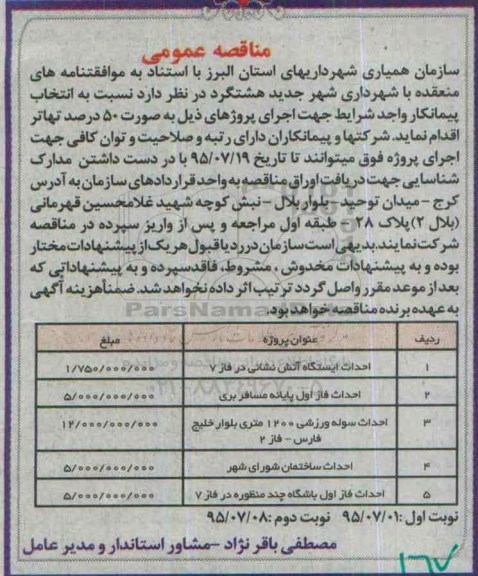 مناقصه عمومی
سازمان همیاری شهرداریهای استان البرز با استناد به موافقتنامه های
منعقده با شهرداری شهر جدید هشتگرد در نظر دارد نسبت به انتخاب
پیمانکار واجد شرایط جهت اجرای پروژهای ذیل به صورت ۵۰ درصد تهاتر
اقدام نماید. شرکتها و پیمانکاران دارای رتبه و صلاحیت و توان کافی جهت
اجرای پروژه فوق میتوانند تا تاریخ ۹۵/۰۷/۱۹ با در دست داشتن مدارک
شناسایی جهت دریافت اوراق مناقصه به واحد قراردادهای سازمان به آدرس
کرج - میدان توحید - بلوار بلال - نبش کوچه شهید غلامحسین قهرمانی
(بلال ۲) پلاک ۲۸ - طبقه اول مراجعه و پس از واریز سپرده در مناقصه
شرکت نمایند. بدیهی است سازمان در رد یا قبول هر یک از پیشنهادات مختار
بوده و به پیشنهادات مخدوش، مشروط، فاقد سپرده و به پیشنهاداتی که
بعد از موعد مقرر واصل گردد ترتیب اثر داده نخواهد شد. ضمناً هزینه آگهی
به عهده برنده مناقصه خواهد بود.
ParsNamad
ردیف عنوان پروژه مبلغ
۱ احداث ایستگاه آتش نشانی در فاز ۷ ۱/۷۵۰/۰۰۰/۰۰۰
۲ احداث فاز اول پایانه مسافر بری ۵/۰۰۰/۰۰۰/۰۰۰
۳ احداث سوله ورزشی ۱۲۰۰ متری بلوار خلیج ۱۲/۰۰۰/۰۰۰/۰۰۰
فارس - فاز ۲
۴ احداث ساختمان شورای شهر ۵/۰۰۰/۰۰۰/۰۰۰
۵ احداث فاز اول باشگاه چند منظوره در فاز ۷ ۵/۰۰۰/۰۰۰/۰۰۰
نوبت اول: ۹۵/۰۷/۰۱ نوبت دوم: ۹۵/۰۷/۰۸
مصطفی باقر نژاد - مشاور استاندار و مدیر عامل
۱۶۷